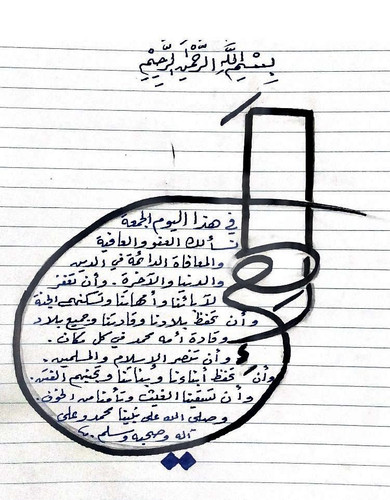 بِسْمِ اللَّهِ الرَّحْمَٰنِ الرَّحِيمِ
في هذا اليوم الجمعة
نسألك العفو والعافية
والمعافاة الدائمة في الدين
والدنيا والآخرة. وأن تغفر
لآبائنا وأمهاتنا وتسكنهم الجنة
وأن تحفظ بلادنا وقادتنا وجميع بلاد
وقادة أمة محمد في كل مكان.
وأن تنصر الإسلام والمسلمين.
وأن تحفظ أبناءنا وبناتنا وتجنبهم الفتن.
وأن تسقينا الغيث وتأمنا من الخوف.
وصلى الله على نبينا محمد وعلى
آله وصحبه وسلم.